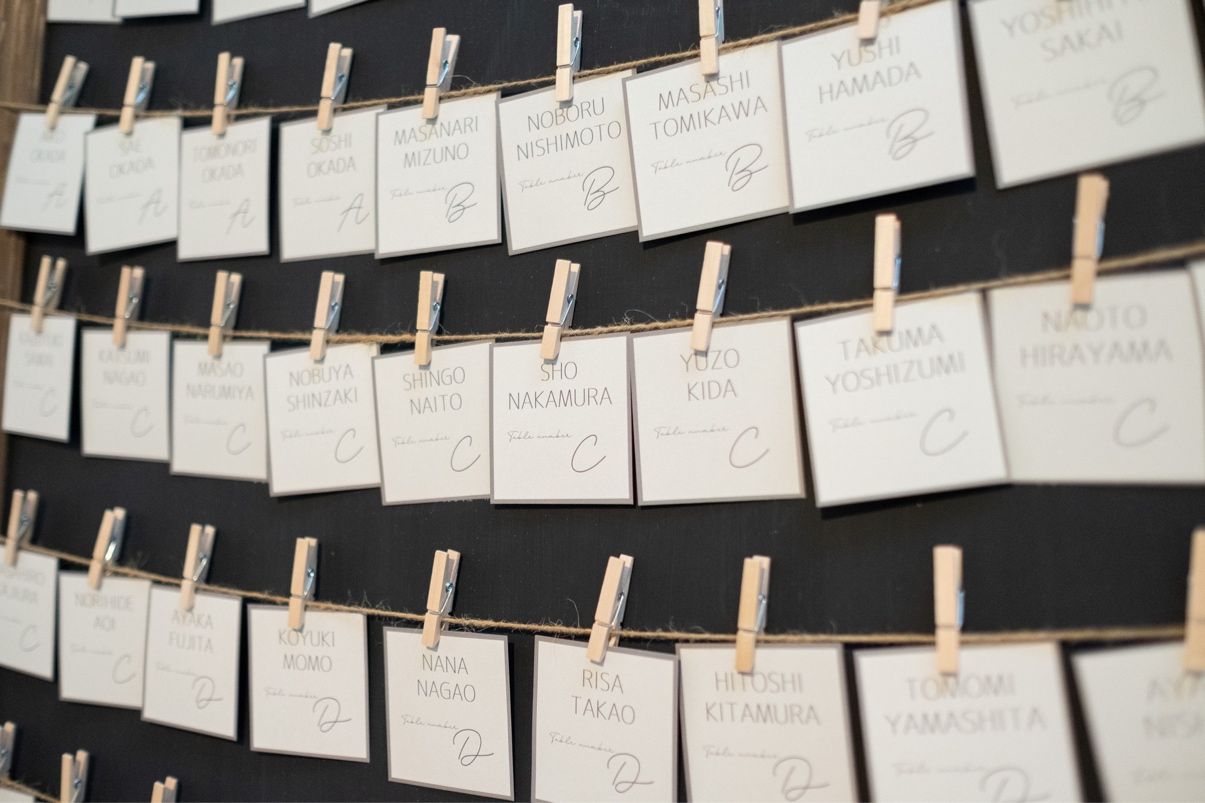 OKADA
Table number
A
SAE
OKADA
Table number
A
TOMONORI
OKADA
Table number
A
SOSHI
OKADA
Table number
A
MASANARI
MIZUNO
Table number
B
NOBORU
NISHIMOTO
Table number
B
MASASHI
TOMIKAWA
Table number
B
YUSHI
HAMADA
Table number
B
SAKAI
Table number
B
C
KATSUMI
NAGAO
Table number
C
MASAO
NARUMIYA
Table number
C
NOBUYA
SHINZAKI
Table number
C
SHINGO
NAITO
Table number
C
SHO
NAKAMURA
Table number
C
YUZO
KIDA
Table number
C
TAKUMA
YOSHIZUMI
Table number
C
NAOTO
HIRAYAMA
Table number
C
C
NORIHIDE
AOI
Table number
C
AYAKA
FUJITA
Table number
D
KOYUKI
MOMO
Table number
D
NANA
NAGAO
Table number
D
RISA
TAKAO
Table number
D
HITOSHI
KITAMURA
Table number
D
TOMOMI
YAMASHITA
Table number
D